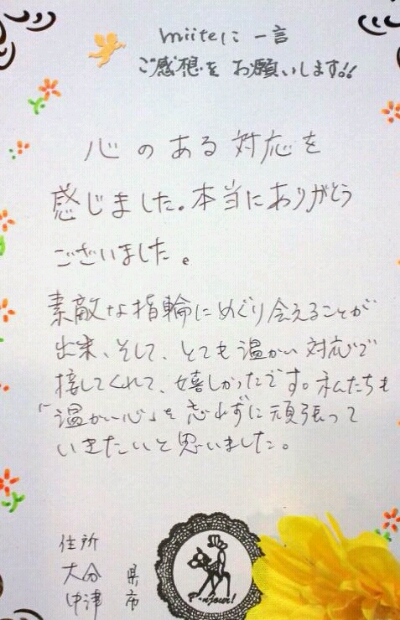 miiteに 一言
ご感想を お願いします!!
心のある対応を
感じました。本当にありがとう
ございました。
素敵な指輪にめぐり会えることが
出来、そして、とても温かい対応で
接してくれて、嬉しかったです。私たちも
「温かい心」を忘れずに頑張って
いきたいと思いました。
住所
大分 県
中津 市